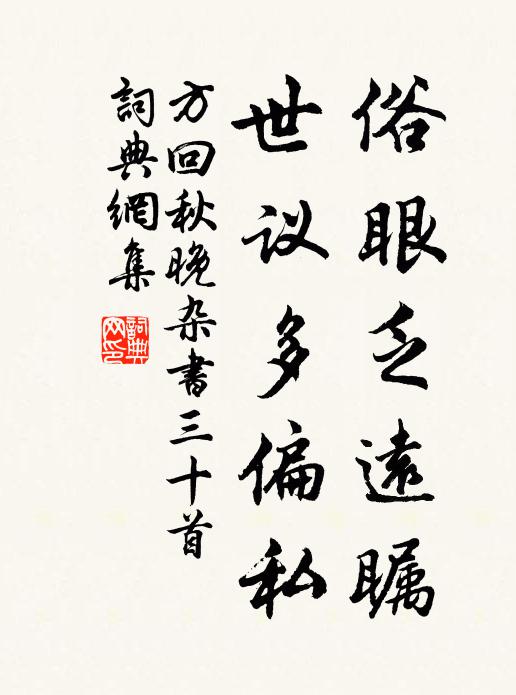 俗眼乏遠瞩
世议多偏私
方回秋晚杂書三十首
詞典網集
詞典网印